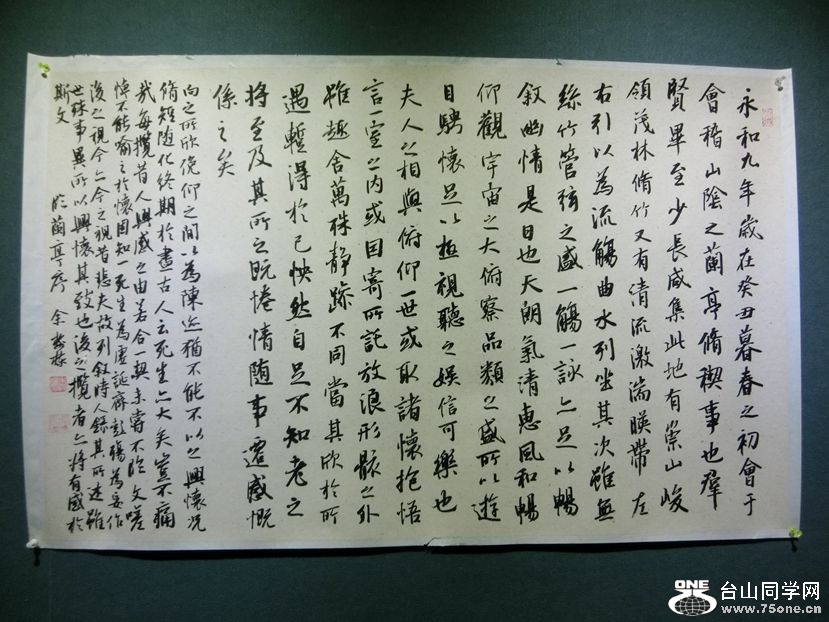 永和九年歲在癸丑暮春之初會于
會稽山陰之蘭亭脩稧事也羣
賢畢至少長咸集此地有崇山峻
領茂林脩竹又有清流激湍暎帶左
右引以為流觴曲水列坐其次雖無
絲竹管弦之盛一觴一詠亦足以暢
敘幽情是日也天朗氣清惠風和暢
仰觀宇宙之大俯察品類之盛所以遊
目騁懷足以極視聽之娛信可樂也
夫人之相與俯仰一世或取諸懷抱悟
言一室之内或因寄所託放浪形骸之外
雖趣舍萬殊靜躁不同當其欣於所
遇暫得於己怏然自足不知老之
將至及其所之既惓情隨事遷感慨
係之矣
向之所欣俛仰之間以為陳迹猶不能不以之興懷況
脩短隨化終期於盡古人云死生亦大矣豈不痛
哉每攬昔人興感之由若合一契未嘗不臨文嗟
悼不能喻之於懷固知一死生為虛誕齊彭殤為妄作
後之視今亦今之視昔悲夫故列敘時人錄其所述雖
世殊事異所以興懷其致也後之攬者亦將有感於
斯文
臨蘭亭序 余
ONE
台山同学网
www.75one.cn